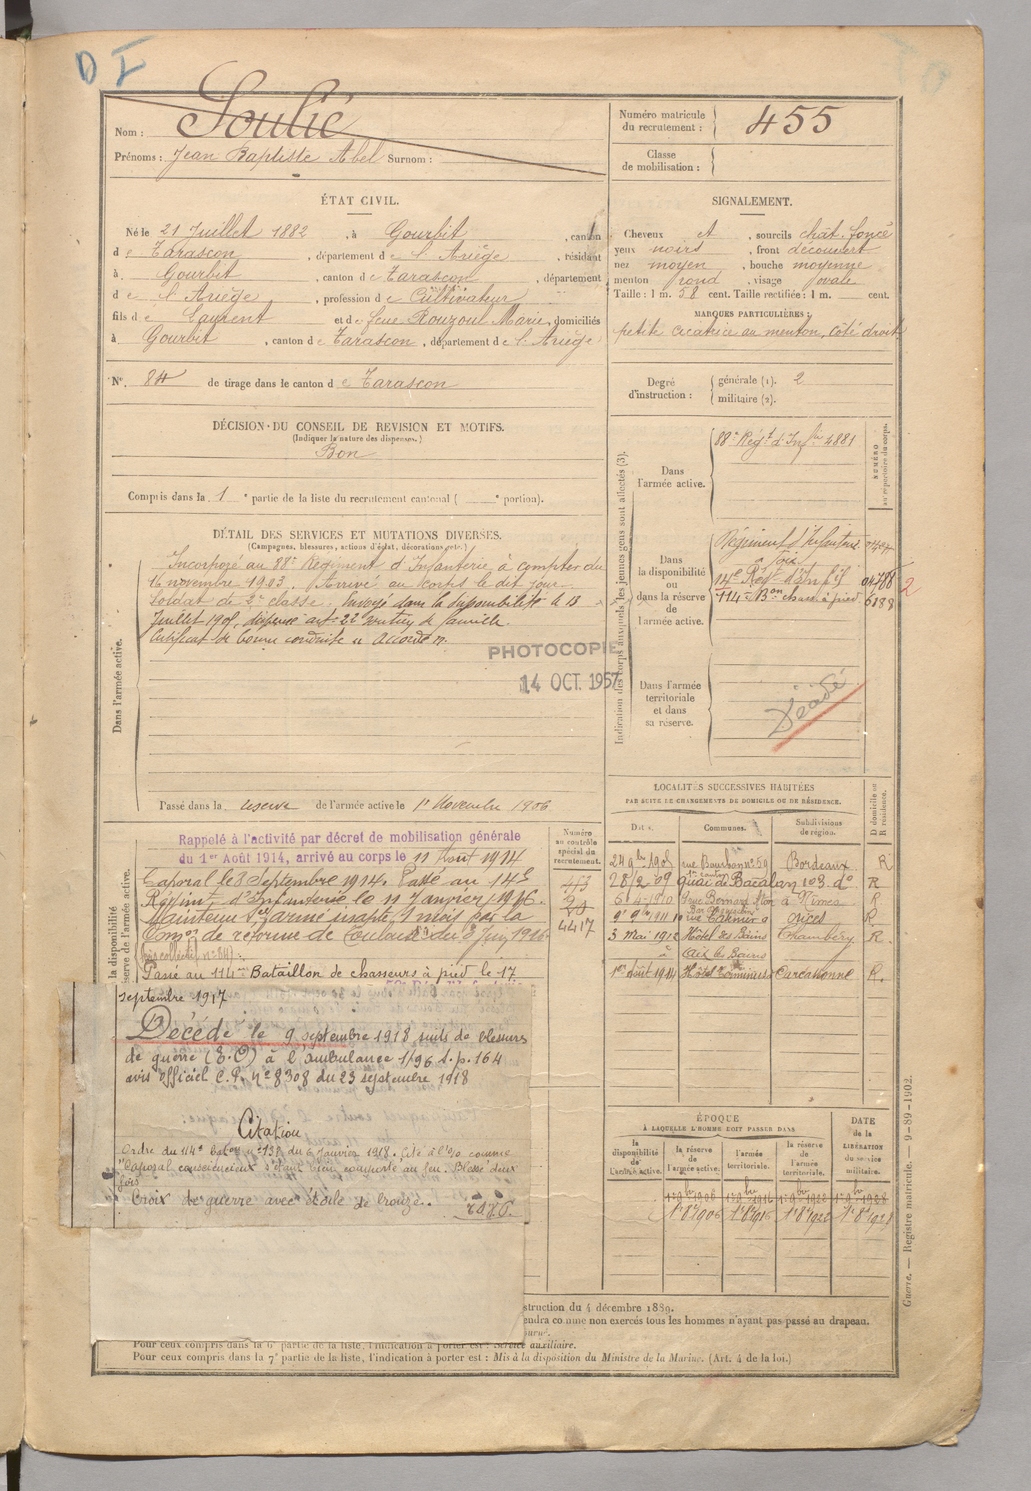 D I
Nom : Soulié
Prénoms : Jean Baptiste Abel Surnom :
Numéro matricule du recrutement : 455
Classe de mobilisation :
ÉTAT CIVIL.
Né le 21 Juillet 1882, à Gourbit, canton
de Tarascon, département de l'Ariège, résidant
à Gourbit, canton de Tarascon, département
de l'Ariège, profession de Cultivateur
fils de Laurent et de feue Rouzoul Marie, domiciliés
à Gourbit, canton de Tarascon, département de l'Ariège
N° 84 de tirage dans le canton de Tarascon
SIGNALEMENT.
Cheveux et, sourcils chât. foncé
yeux noirs, front découvert
nez moyen, bouche moyenne
menton rond, visage ovale
Taille : 1 m. 58 cent. Taille rectifiée : 1 m. cent.
MARQUES PARTICULIÈRES :
petite cicatrice au menton, côté droit
Degré d'instruction : générale (1). 2
militaire (2).
DÉCISION DU CONSEIL DE REVISION ET MOTIFS.
(Indiquer la nature des dispenses.)
Bon
Compris dans la 1e partie de la liste du recrutement cantonal ( e portion).
DÉTAIL DES SERVICES ET MUTATIONS DIVERSES.
(Campagnes, blessures, actions d'éclat, décorations, etc.)
Dans l'armée active.
Incorporé au 88e Régiment d'Infanterie, à compter du
16 novembre 1903. Arrivé au corps le dit jour
Soldat de 2e classe. Envoyé dans la disponibilité le 13
Juillet 1905, dispensé art. 22 soutien de famille.
Certificat de bonne conduite " Accordé ".
PHOTOCOPIE
14 OCT. 1957
Passé dans la reserve de l'armée active le 1er Novembre 1906
Indication des corps auxquels les jeunes gens sont affectés (3).
NUMÉRO au répertoire du corps.
Dans l'armée active.
88e Régt d'Infie 4881
Dans la disponibilité ou dans la réserve de l'armée active.
Régiment d'Infanterie
Foix
14e Régt d'Inf
114e Bon chass. à pied 6188
2
Dans l'armée territoriale et dans sa réserve.
Décédé
LOCALITÉS SUCCESSIVES HABITÉES
PAR SUITE DE CHANGEMENTS DE DOMICILE OU DE RÉSIDENCE.
Dates. Communes. Subdivisions de région. D domicile ou R résidence.
24 9bre 1905 rue Bourbon n° 59 Bordeaux R
28/2 09 quai de Bacalan 103 do R
6 4 1910 à Nimes R
9bre 1911 rue R
3 Mai 1912 Hôtel des Bains Chambéry R.
à Aix les Bains
1er Août 1914 Hôtel Terminus Carcassonne R.
Numéro au contrôle spécial du recrutement.
4417
la disponibilité
réserve de l'armée active.
Rappelé à l'activité par décret de mobilisation générale
du 1er Août 1914, arrivé au corps le 11 Août 1914
Caporal le 3 Septembre 1914. Passé au 143
Régiment d'Infanterie le 11 Janvier 1916.
Maintenu Sce armé inapte 1 mois par la
Comon de réforme de Toulouse du 8 Juin 1916
Passé au 114me Bataillon de chasseurs à pied le 17
septembre 1917
Décédé le 9 septembre 1918 suite de blessures
de guerre (E.O) à l'ambulance 1/96 S.p. 164
avis officiel C.P. n° 8308 du 23 septembre 1918
Citation
Ordre du 114e Baton n° 138 du 6 Janvier 1918. Cité à l'o/o. comme
"Caporal consciencieux s'étant bien comporté au feu. Blessé deux
fois
Croix de guerre avec étoile de bronze.
ÉPOQUE
À LAQUELLE L'HOMME DOIT PASSER DANS
la disponibilité de l'armée active. la réserve de l'armée active. l'armée territoriale. la réserve de l'armée territoriale.
DATE de la LIBÉRATION du service militaire.
1er 9bre 1906 1er 9bre 1916 1er 9bre 1922 1er 9bre 1928
1er 8e 1906 1er 8e 1916 1er 8e 1922 1er 8e 1928
struction du 4 décembre 1889.
endra comme non exercés tous les hommes n'ayant pas passé au drapeau.
Pour ceux compris dans la 6e partie de la liste, l'indication à porter est : Service auxiliaire.
Pour ceux compris dans la 7e partie de la liste, l'indication à porter est : Mis à la disposition du Ministre de la Marine. (Art. 4 de la loi.)
Guerre. — Registre matricule. — 9-89-1902.